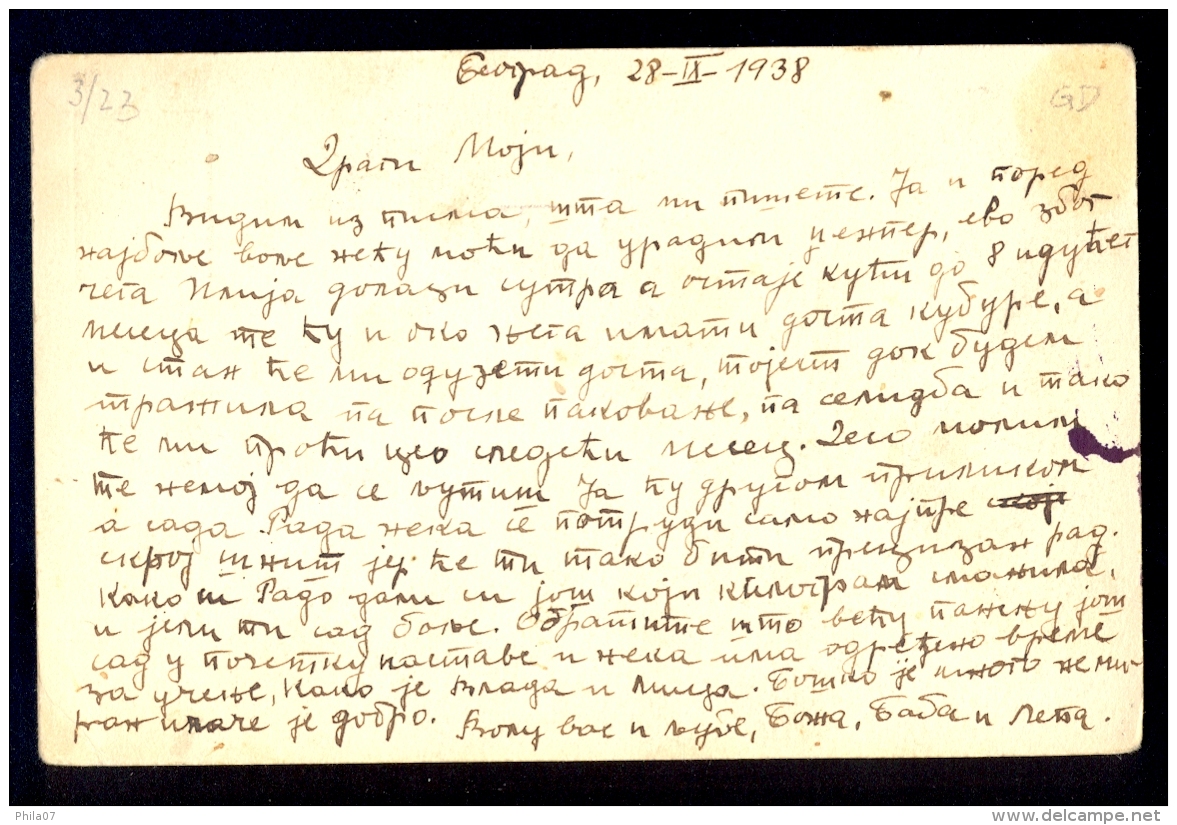 3/23
GD
Београд, 28-IX-1938
Драги Моји,
Видим из писма, шта ми пишете. Ја и поред
најбоље воље нећу моћи да урадим џемпер, ево због
чега Илија долази сутра а остаје кући до 8 идућег
месеца те ћу и око њега имати доста кубуре, а
и стан ће ми одузети доста, тојест док будем
тражила па после паковање, па селидба и тако
ће ми проћи цео следећи месец. молим
те немој да се љутиш Ја ћу другом приликом
а сада Рада нека се потруди само најпре
скрој шнит јер ће ти тако бити прецизан рад.
Како си Радо дали си још који килограм смањила,
и јели ти сад боље. Обратите што већу пажњу још
сад у почетку наставе и нека има одређено време
за учење, Како је Влада и Мица. Бошко је много неми-
ран иначе је добро. Волу вас и љубе, Божа, Баба и Лета.
Phila07
www.delcampe.net